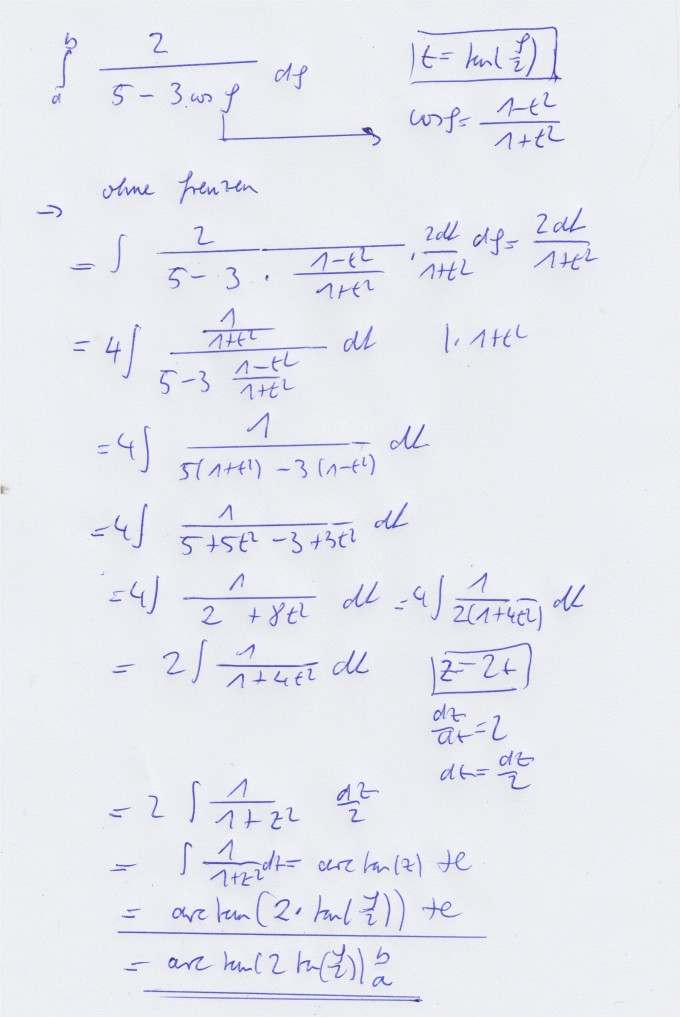 ∫_a^b 2/(5 - 3 cos φ) dφ    t = tan(φ/2)
cos φ = (1-t²)/(1+t²)
→ ohne Grenzen
= ∫ 2/(5 - 3 · (1-t²)/(1+t²)) · 2dt/(1+t²)    dφ = 2dt/(1+t²)
= 4∫ (1/(1+t²))/(5 - 3 (1-t²)/(1+t²)) dt    | · 1+t²
= 4∫ 1/(5(1+t²) - 3(1-t²)) dt
= 4∫ 1/(5+5t² - 3+3t²) dt
= 4∫ 1/(2 + 8t²) dt = 4∫ 1/(2(1+4t²)) dt
= 2∫ 1/(1+4t²) dt    z = 2t
dz/dt = 2
dt = dz/2
= 2 ∫ 1/(1+z²) dz/2
= ∫ 1/(1+z²) dz = arc tan(z) + c
= arc tan(2 · tan(φ/2)) + c
= arc tan(2 tan(φ/2))|_a^b